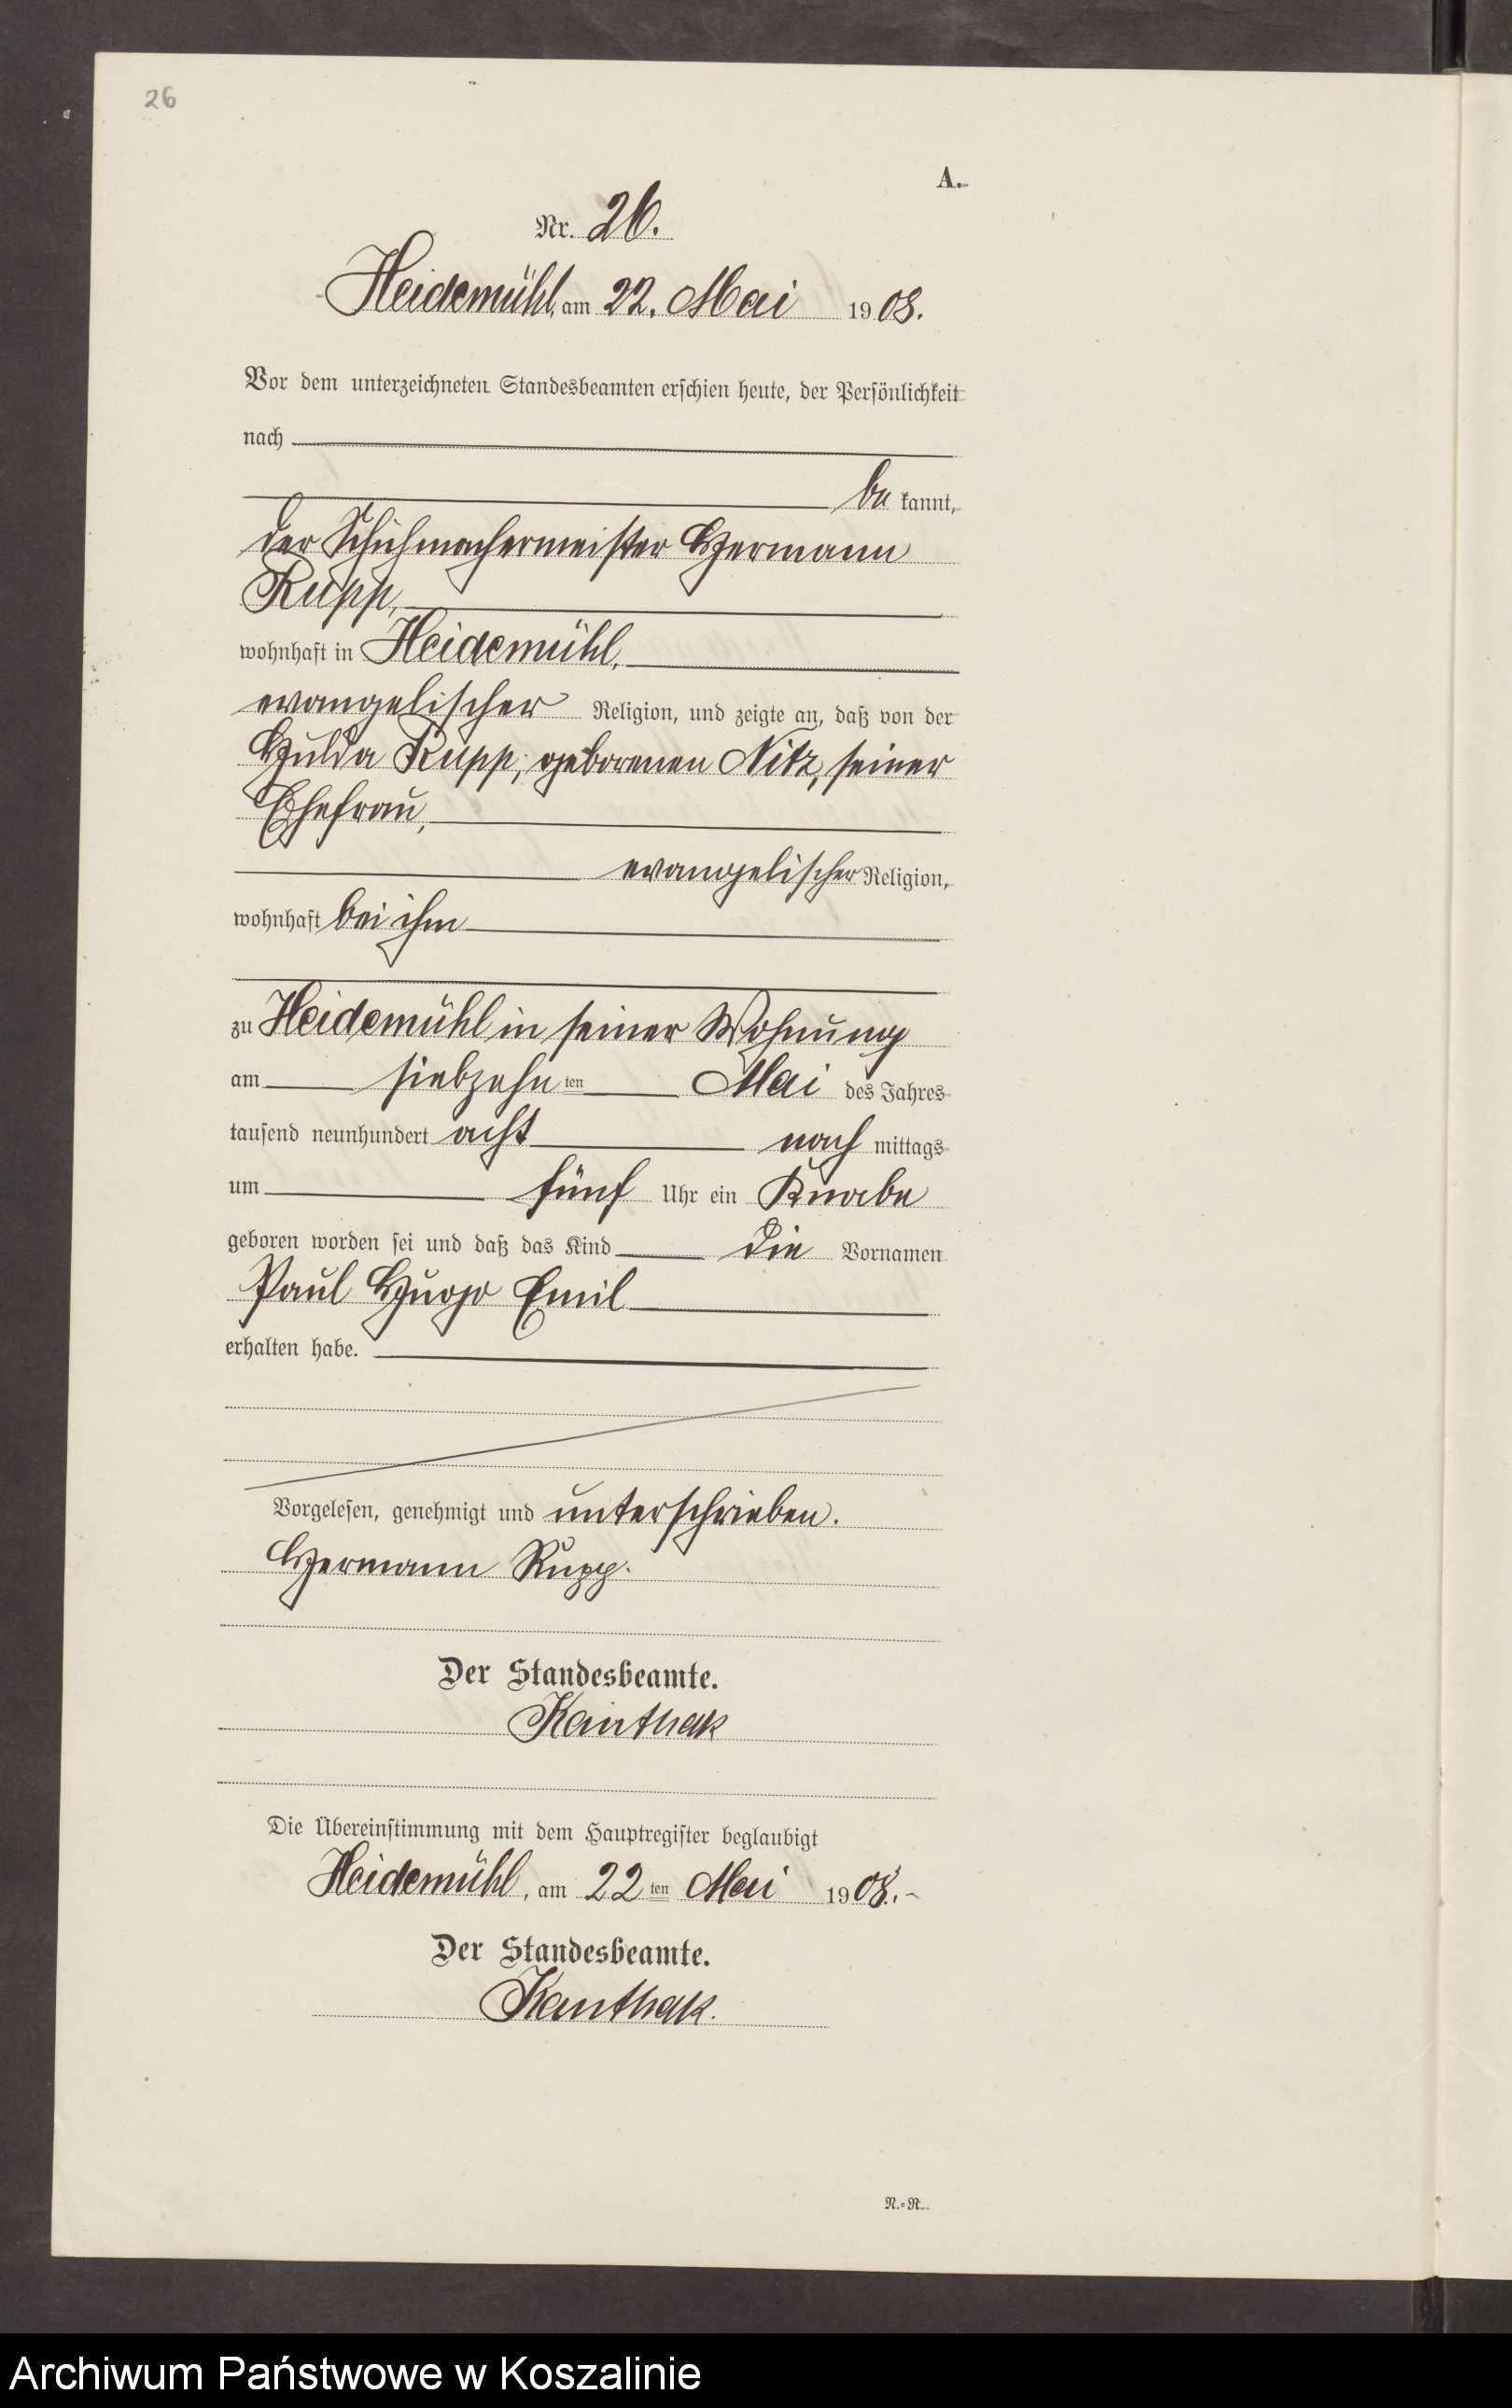 26
A.
Nr. 26.
Heidemühl, am 22. Mai 1908.
Vor dem unterzeichneten Standesbeamten erschien heute, der Persönlichkeit
nach
be kannt,
der Schuhmachermeister Hermann
Rupp,
wohnhaft in Heidemühl,
evangelischer Religion, und zeigte an, daß von der
Hulda Rupp, geborenen Nitz, seiner
Ehefrau,
evangelischer Religion,
wohnhaft bei ihm
zu Heidemühl in seiner Wohnung
am siebzehn ten Mai des Jahres
tausend neunhundert acht nach mittags
um fünf Uhr ein Knabe
geboren worden sei und daß das Kind die Vornamen
Paul Hugo Emil
erhalten habe.
Vorgelesen, genehmigt und unterschrieben.
Hermann Rupp.
Der Standesbeamte.
Kanthak
Die Übereinstimmung mit dem Hauptregister beglaubigt
Heidemühl, am 22 ten Mai 1908.
Der Standesbeamte.
Kanthak.
N.=R.
Archiwum Państwowe w Koszalinie